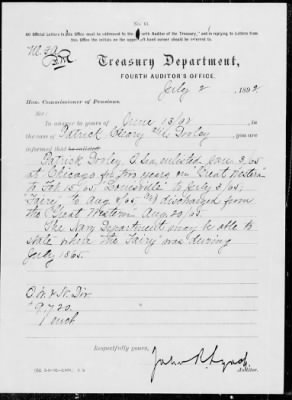 No. 61.
All Official Letters to this Office must be addressed to the "Fourth Auditor of the Treasury," and in replying to Letters from
this Office the initials on the upper left hand corner should be referred to.
Treasury Department,
FOURTH AUDITOR'S OFFICE.
July 2, 1892
Hon. Commissioner of Pensions.
In answer to yours of June 13/92, in
the case of Patrick Dooley you are
informed
Patrick Dooley, O. Sea. enlisted Jan. 3, 65
at Chicago for two years on Great Western
to Feb 15/65, to July 3/65;
Fairy, to Aug 9/65, discharged from
the Great Western Aug 20/65.
The Navy Department may be able to
state where the Fairy was during
July 1865.
9720.
1 encl.
Respectfully yours,
John R. Lynch
Auditor.